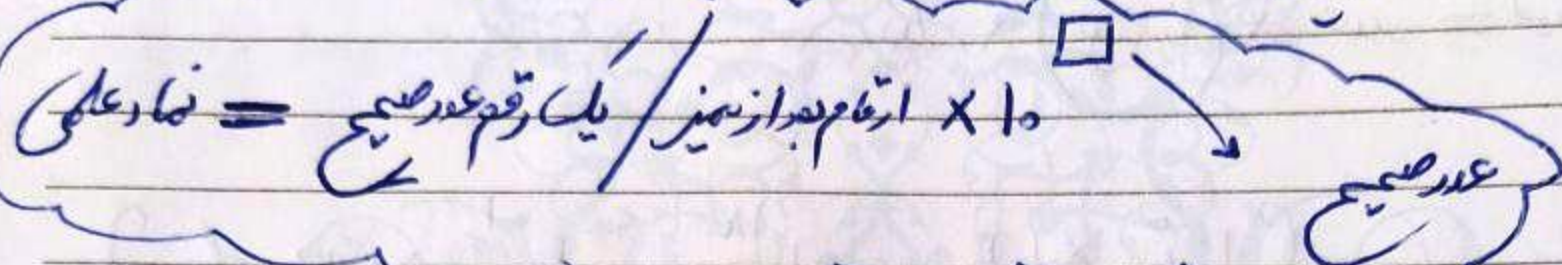 نماد علمی = یک رقم عدد صحیح / ارقام بعد از ممیز × ۱۰ □
عدد صحیح